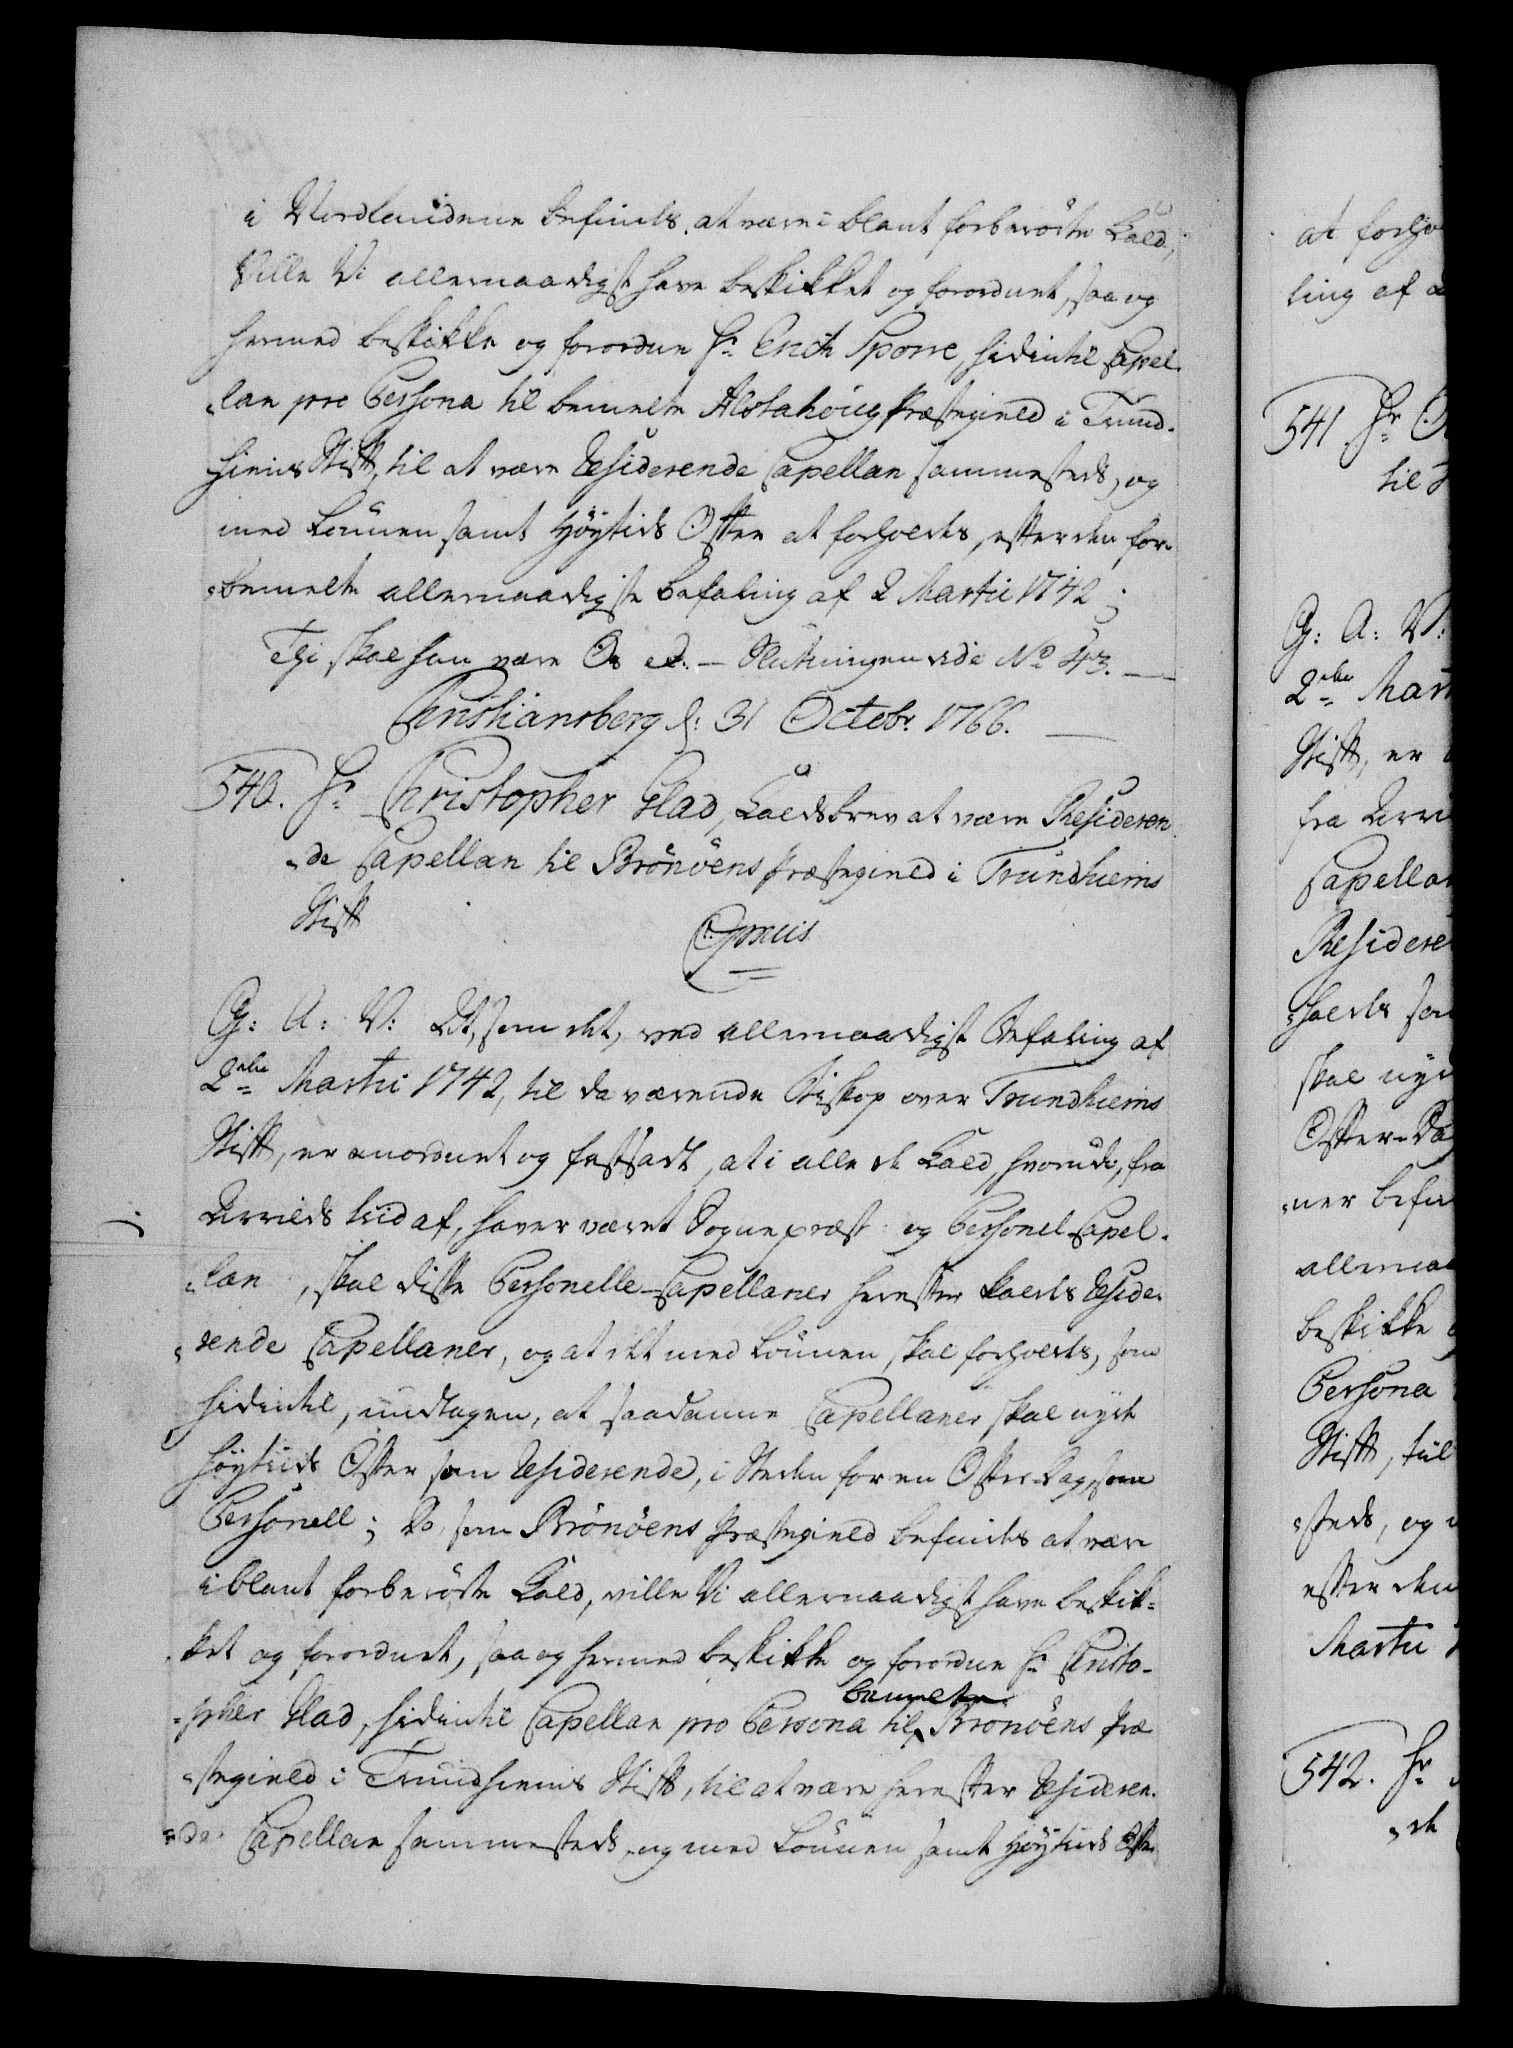 i Nordlandene befindes at være iblant forberörte Kald,
Ville Vi allernaadigst have beskikket og forordnet, saa og
hermed beskikke og forordne Hr Erich Sporre, hidindtil Capel-
-lan pro Persona til bemelte Alstahoug Præstegield i Trund-
hiems Stift, til at være Residerende Capellan sammesteds, og
med Lönnen samt Höytids Offer at forholdes, efter den for-
-bemelte allernaadigste befaling af 2 Martii 1742;
Thi skal han være Os etc. – Slutningen vide No 43. –
Christiansberg d: 31 Octobr 1766.
540. Hr Christopher Glad, Kaldsbrev at være Resideren
-de Capellan til Brönöens Præstegield i Trundhiems
Stift
C: Gratis
G: A: V: At, som det, ved allernaadigst Befaling af
2den Martii 1742, til da værende Biskop over Trundhiems
Stift, er anordnet og fastsadt, at i alle de Kald, hvorudi, fra
Arrilds tiid af, haver været Sognepræst og Personel Capel-
-lan, skal disse Personelle Capellaner herefter kaldes Reside-
-rende Capellaner, og at det med Lönnen skal forholdes, som
hidindtil, undtagen, at saadanne Capellaner skal nyde
Höytiids Offer som Residerende, i Steden for en Offer-Dag, som
Personell; Da, som Brönöens Præstegield befindes at være
iblant forberörte Kald, ville Vi allernaadigst have beskik-
ket og forordnet, saa og hermed beskikke og forordne Hr Christo-
-pher Glad, hidindtil Capellan pro Persona til bemelte Brönöens Præ
-stegield i Trundhiems Stift, til at være herefter Resideren-
-de Capellan sammesteds, og med Lönnen samt Höytiids Offer
at forho
ling af
541 Hr
til
G: A: V:
2den Mart
Stift, er
fra Arri
Capella
Residere
-holdes som
skal nyde
Offer-Da
-ner befin
allernaa
beskikke
Persona
Stift, til
-steds, og
efter den
Martii
542. Hr
-de